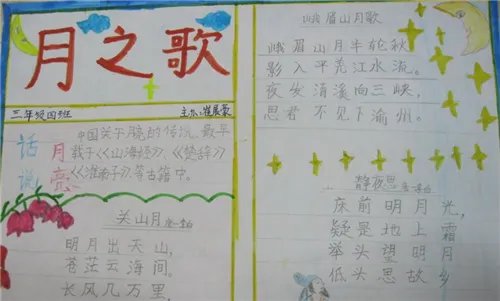 月之歌
三年级四班
主办:崔展豪
话说
月亮
中国关于月亮的传说，最早
载于《山海经》、《楚辞》
《淮南子》、等古籍中。
关山月
明月出天山，
苍茫云海间。
长风几万里，
峨眉山月歌
峨眉山月半轮秋
影入平羌江水流。
夜发清溪向三峡，
思君不见下渝州。
静夜思
床前明月光，
疑是地上霜
举头望明月
低头思故乡